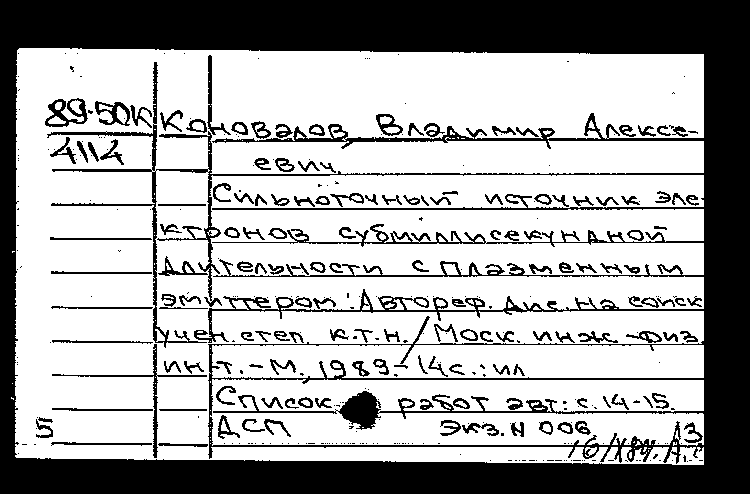 89-50К Коновалов, Владимир Алексе-
4114 евич.
Сильноточный источник эле-
ктронов субмиллисекундной
длительности с плазменным
эмиттером: Автореф. дис. на соиск
учен. степ. к.т.н. / Моск. инж.-физ.
ин-т. - М., 1989.- 14с.: ил
Список работ авт: с. 14-15.
5 ДСП Экз. N 006